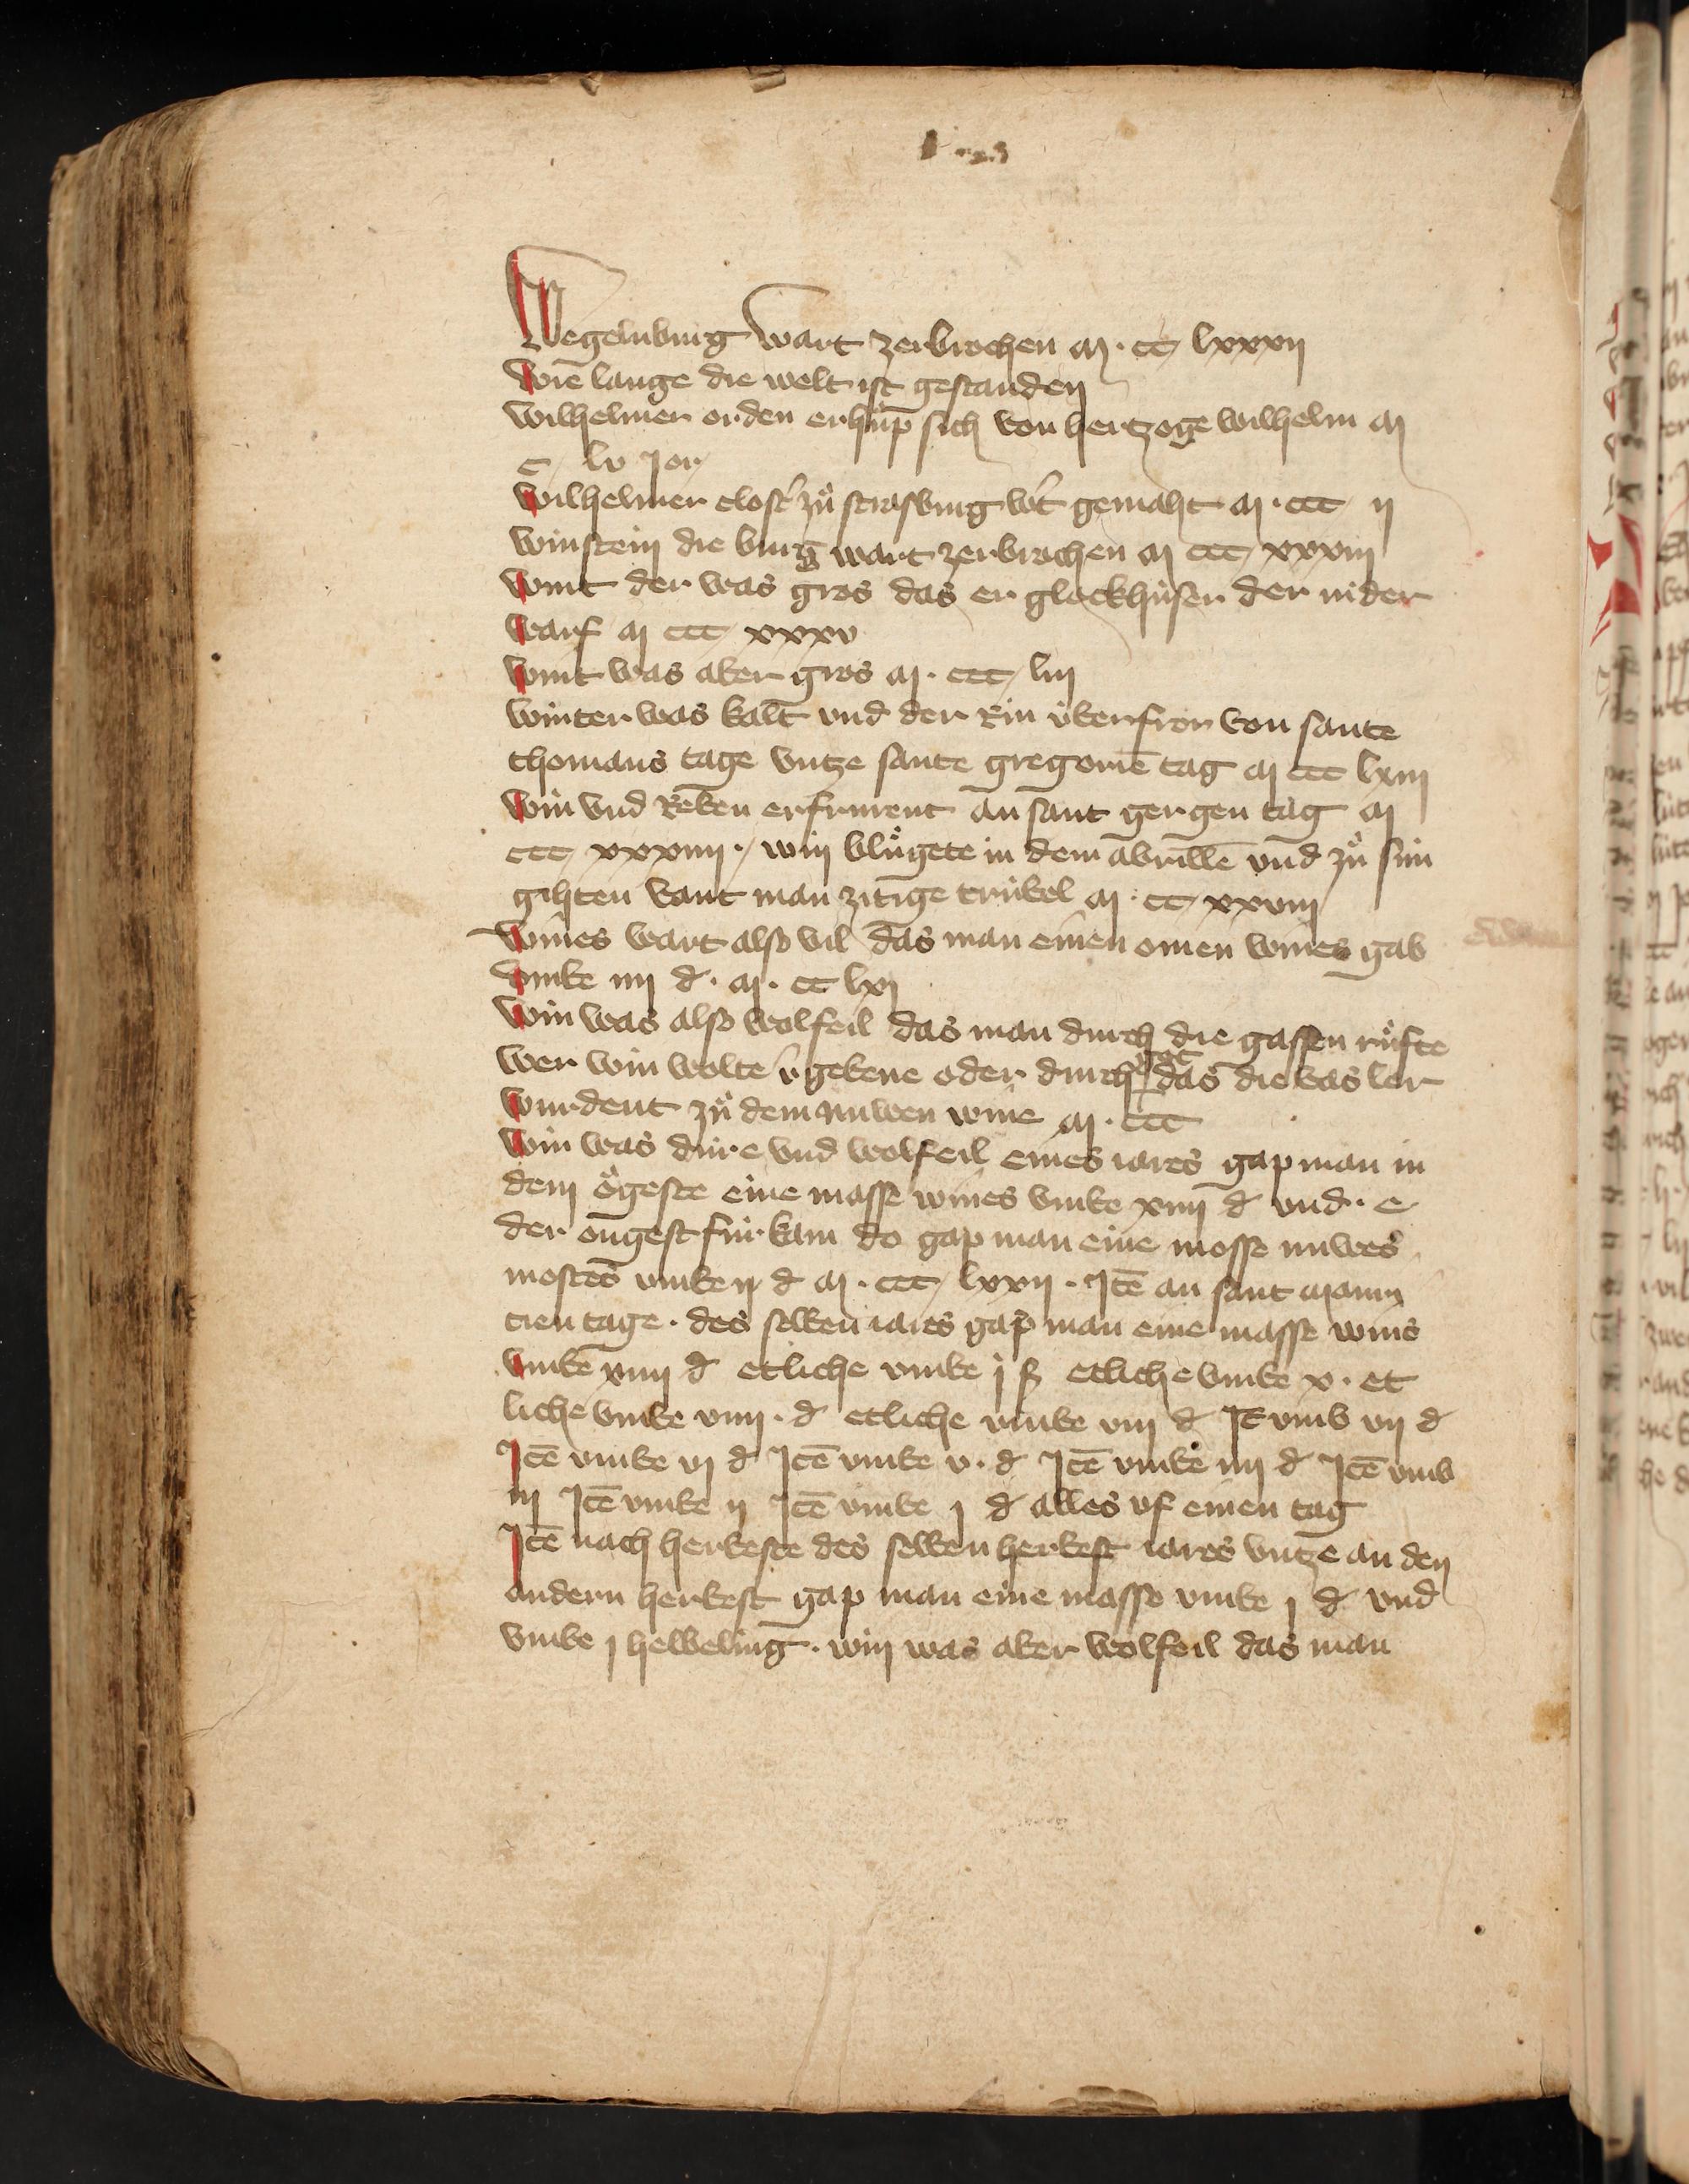 Wegelnburg wart zerbrochen M · cc lxxxij
Wie lange die welt ist gestanden
Wilhelmer orden erhůp sich von hertzoge wilhelm M
c lv Jor
Wilhelmer clost' zů strasburg w't gemaht M · ccc ij
Winstein die burg wart zerbrochen M ccc xxxiij
Wint der was gros das er glockhúser der nider
warf M ccc xxxv
Wint was aber gros M · ccc liij
Winter was kalt vnd der Rin úberfror von sante
thomans tage vntze sante gregorien tag M ccc lxiij
Win vnd Reben erfrurent an sant gergen tag M
ccc xxxiiij · win blůgete in dem abrillē vnd zů sun
gihten vant man zitige trúbel M · cc xxviij
Wines wart also vil das man einen omen wines gab
vmbe iiij d · M · cc lxj
Win was also wolfeil das man durch die gassen růfte
wer win wolte v'gebene oder durch got das die vas ler
wurdent zů dem nuwen wine M · ccc
Win was dúre vnd wolfeil eines iares gap man in
dem ǒgeste eine masse wines vmbe xiiij d vnd · e
der ougest fúr kam do gap man eine mosse nuwes
mostes vmbe ij d M · ccc lxxij · Itē an sant martin
tien tage · des selben iares gap man eine masse wins
vmbe xiiij d etliche vmbe j ß etliche vmbe x · et
liche vmbe viiij · d etliche vmbe viij d Itē vmb vij d
Itē vmbe vj d Itē vmbe v · d Itē vmbe iiij d Itē vmb
iij Itē vmbe ij Itē vmbe j d alles vf einen tag
Itē nach herbeste des selben herbest iares vntze an den
andern herbest gap man eine masse vmbe j d vnd
vmbe j helbeling · win was aber wolfeil das man